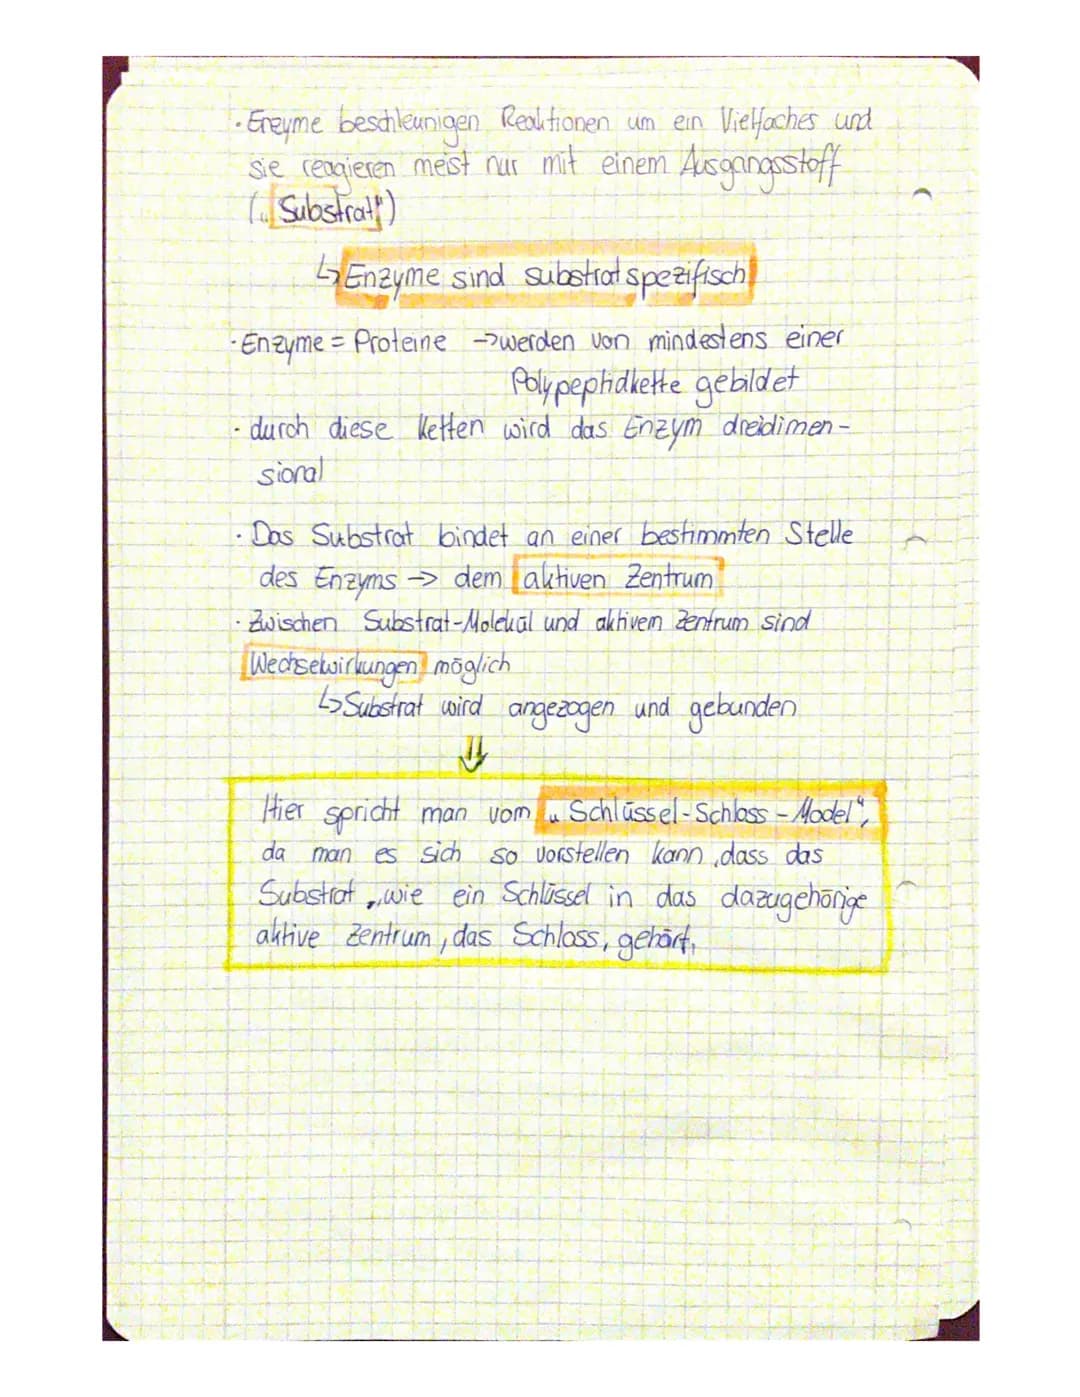 · Enzyme beschleunigen Reaktionen um ein Vielfaches und
sie reagieren meist nur mit einem Ausgangsstoff
(„Substrat“)
↳ Enzyme sind substratspezifisch
· Enzyme = Proteine → werden von mindestens einer
Polypeptidkette gebildet
· durch diese Ketten wird das Enzym dreidimen-
sional
· Das Substrat bindet an einer bestimmten Stelle
des Enzyms → dem aktiven Zentrum
· Zwischen Substrat-Molekül und aktivem Zentrum sind
Wechselwirkungen möglich
↳ Substrat wird angezogen und gebunden
⇓
Hier spricht man vom „Schlüssel-Schloss-Model“,
da man es sich so vorstellen kann, dass das
Substrat, wie ein Schlüssel in das dazugehörige
aktive Zentrum, das Schloss, gehört.